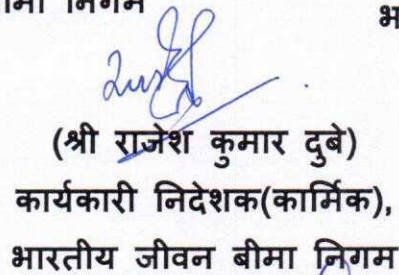 निगम
भ
(श्री राजेश कुमार दुबे)
कार्यकारी निदेशक(कार्मिक),
भारतीय जीवन बीमा निगम